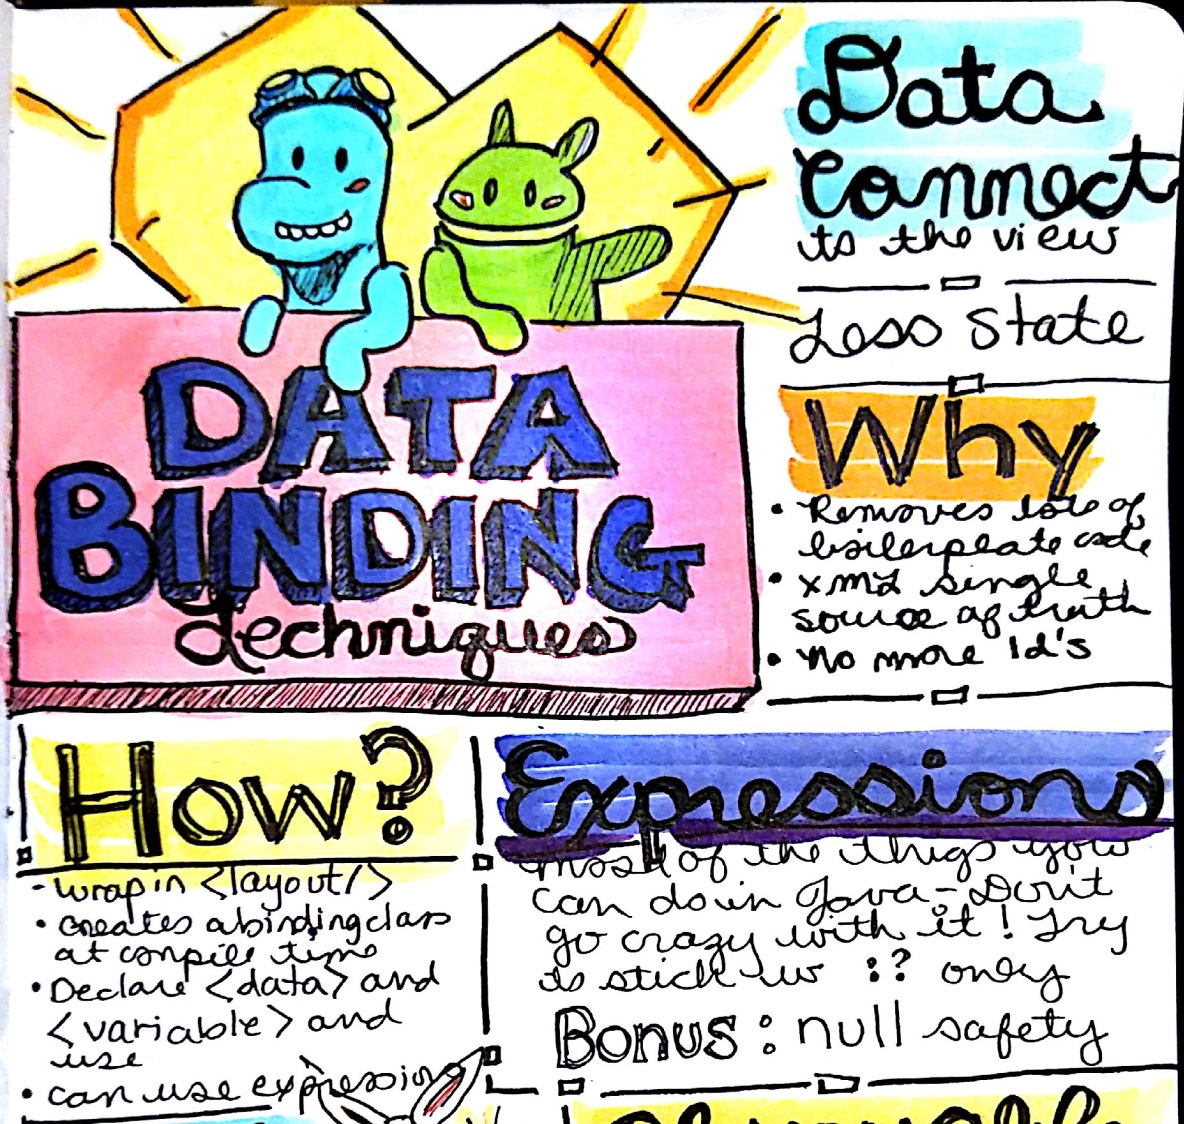 DATA
BINDING
techniques
Data
Connect
to the view
Less State
Why
• Removes lots of
boilerplate code
• XML single
source of truth
• No more Id's
How?
- wrap in <layout/>
• creates a binding class
at compile time
• Declare <data> and
<variable> and
use
• can use expression
Expressions
most of the things you
can do in Java - Don't
go crazy with it! Try
to stick w : ? only
Bonus: null safety